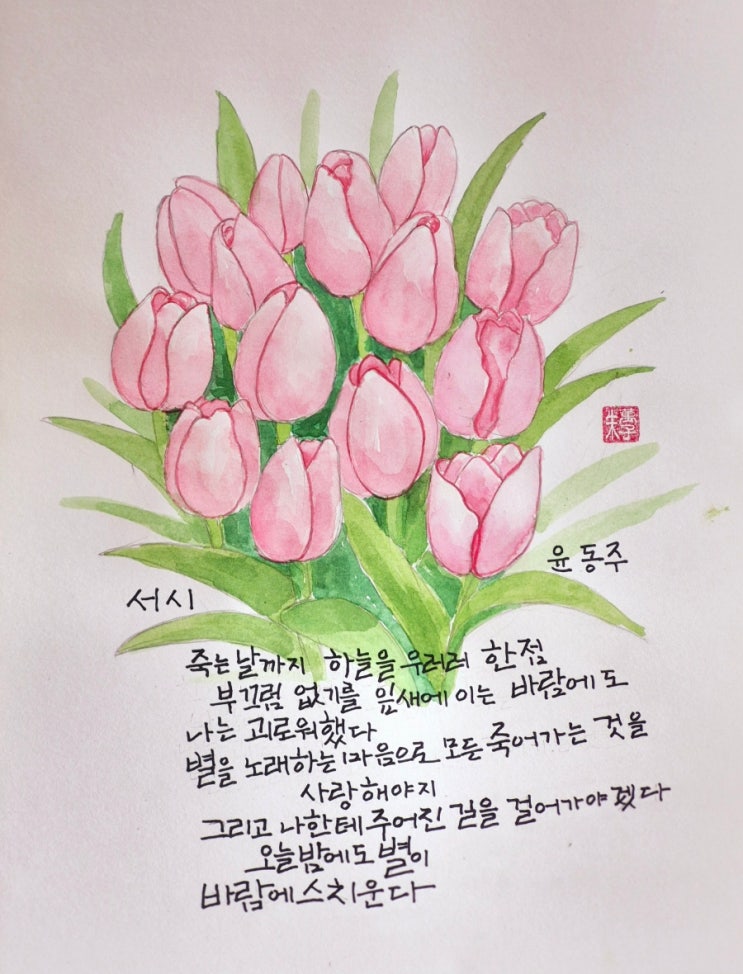 서시
윤동주
죽는날까지 하늘을 우러러 한점
부끄럼 없기를 잎새에 이는 바람에도
나는 괴로워했다
별을 노래하는 마음으로 모든 죽어가는 것을
사랑해야지
그리고 나한테 주어진 길을 걸어가야겠다
오늘밤에도 별이
바람에 스치운다